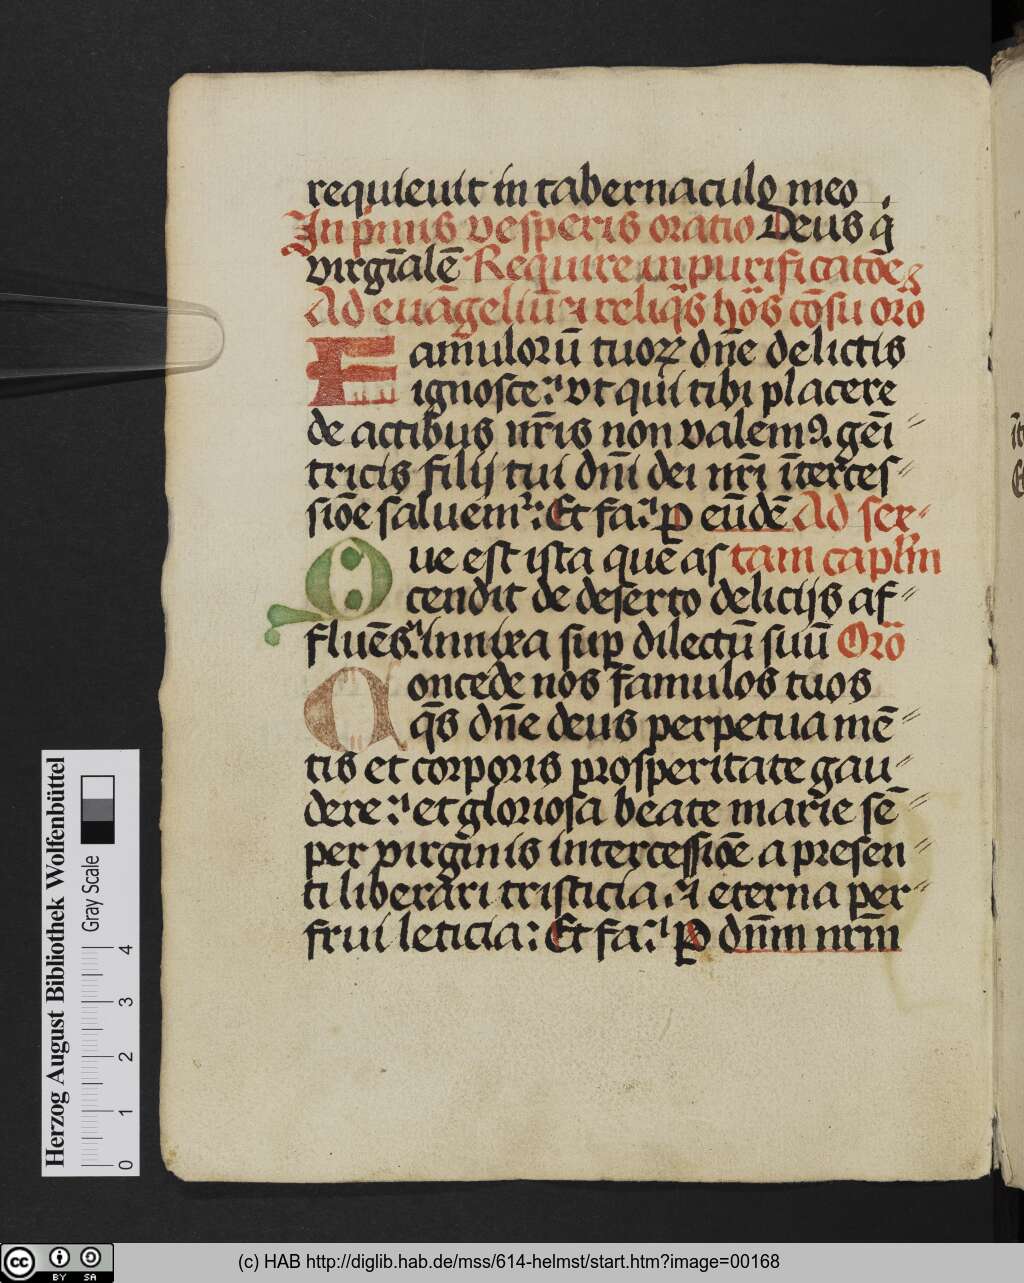 requieuit in tabernaculo meo .
In pͥmis vesperis oratio Deus qͥ
virgīalē Require in purificatōe
Ad euāgeliū ⁊ reliqͣs hōs cōsu oro
Famulorū tuoꝝ dn̄e delictis
ignosce: vt qui tibi placere
de actibus nr̄is non valemꝰ. gēi-
tricis filij tui dn̄i dei nr̄i īterces-
siōe saluemͬ: Et fa: ꝑ eūdē Ad sex-
Que est ista que as tam capl'm
cendit de deserto delicijs af-
fluēs: innixa suꝑ dilectū suū Orō
Concede nos famulos tuos
qͣs dn̄e deus perpetua mē-
tis et corporis prosperitate gau-
dere: et gloriosa beate marie sē-
per virgīnis intercessiōe a presen-
ti liberari tristicia: ⁊ eterna per-
frui leticia: Et fa: ꝑ dn̄m nr̄m
Herzog August Bibliothek Wolfenbüttel
Gray Scale
0 1 2 3 4
cc BY SA
(c) HAB http://diglib.hab.de/mss/614-helmst/start.htm?image=00168